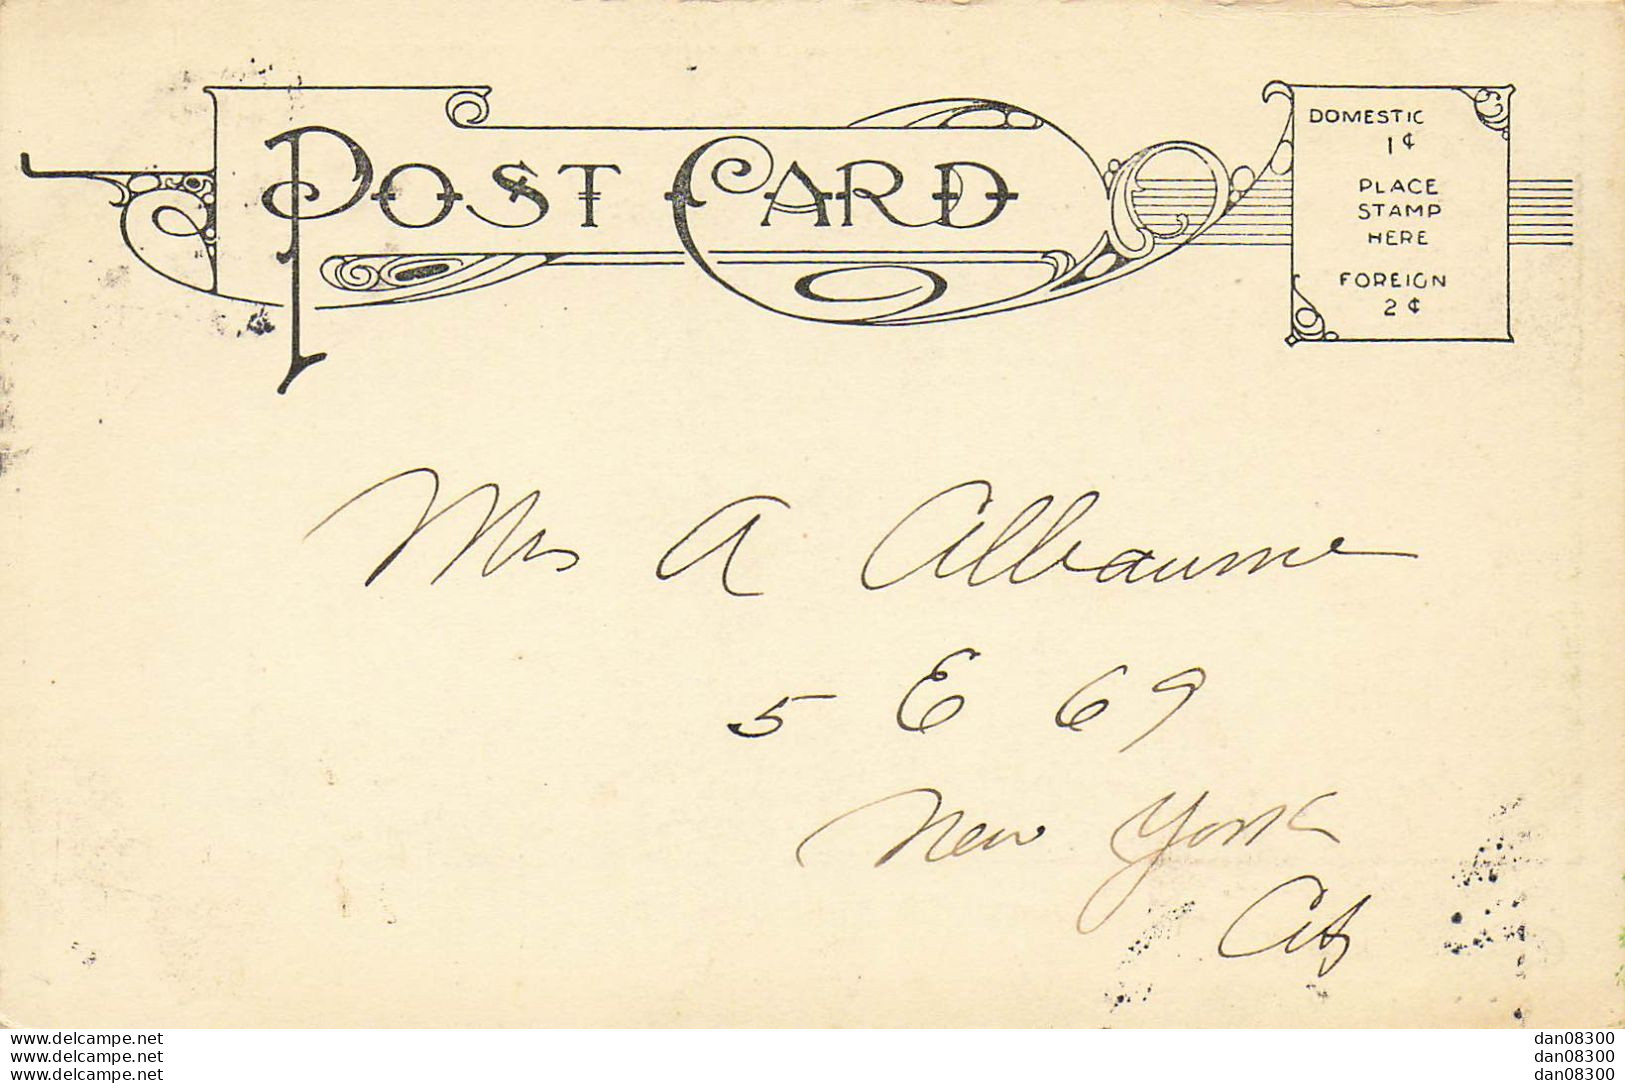 POST CARD
DOMESTIC
1¢
PLACE
STAMP
HERE
FOREIGN
2¢
Mrs A Albaume
5 E 69
New York
City
www.delcampe.net
www.delcampe.net
www.delcampe.net
dan08300
dan08300
dan08300